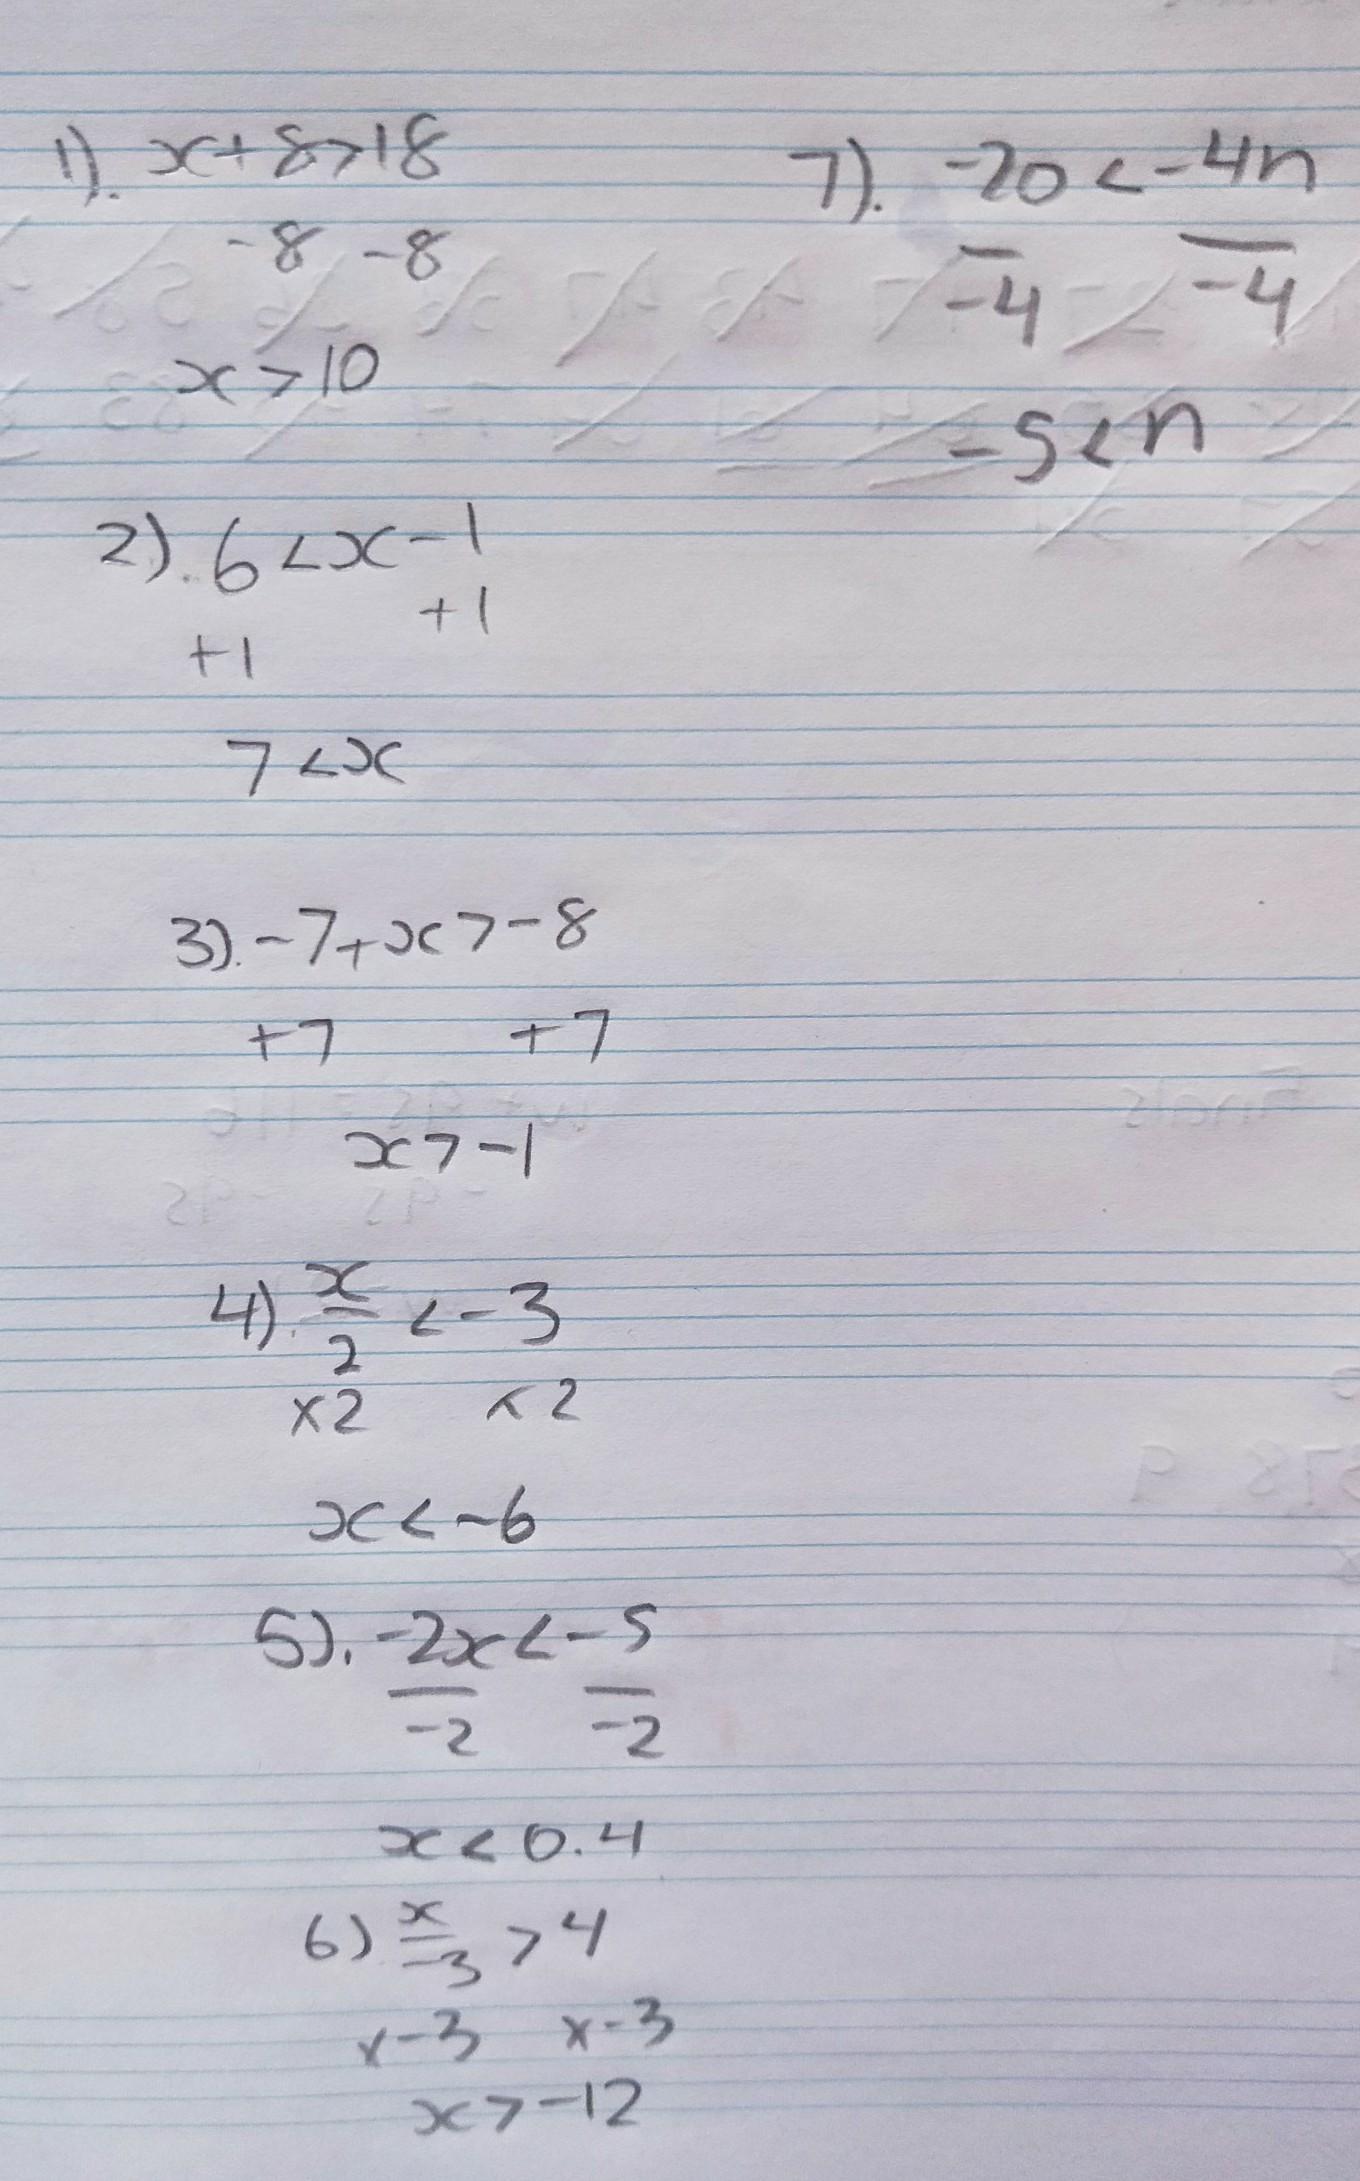 1). x+8>18
-8 -8
x>10
2). 6<x-1
+1
+1
7<x
3). -7+x>-8
+7 +7
x>-1
4). x/2 < -3
×2 ×2
x<-6
5). -2x<-5
-2 -2
x<0.4
6) x/-3 >4
x-3 x-3
x>-12
7). -20<-4n
-4 -4
-5<n